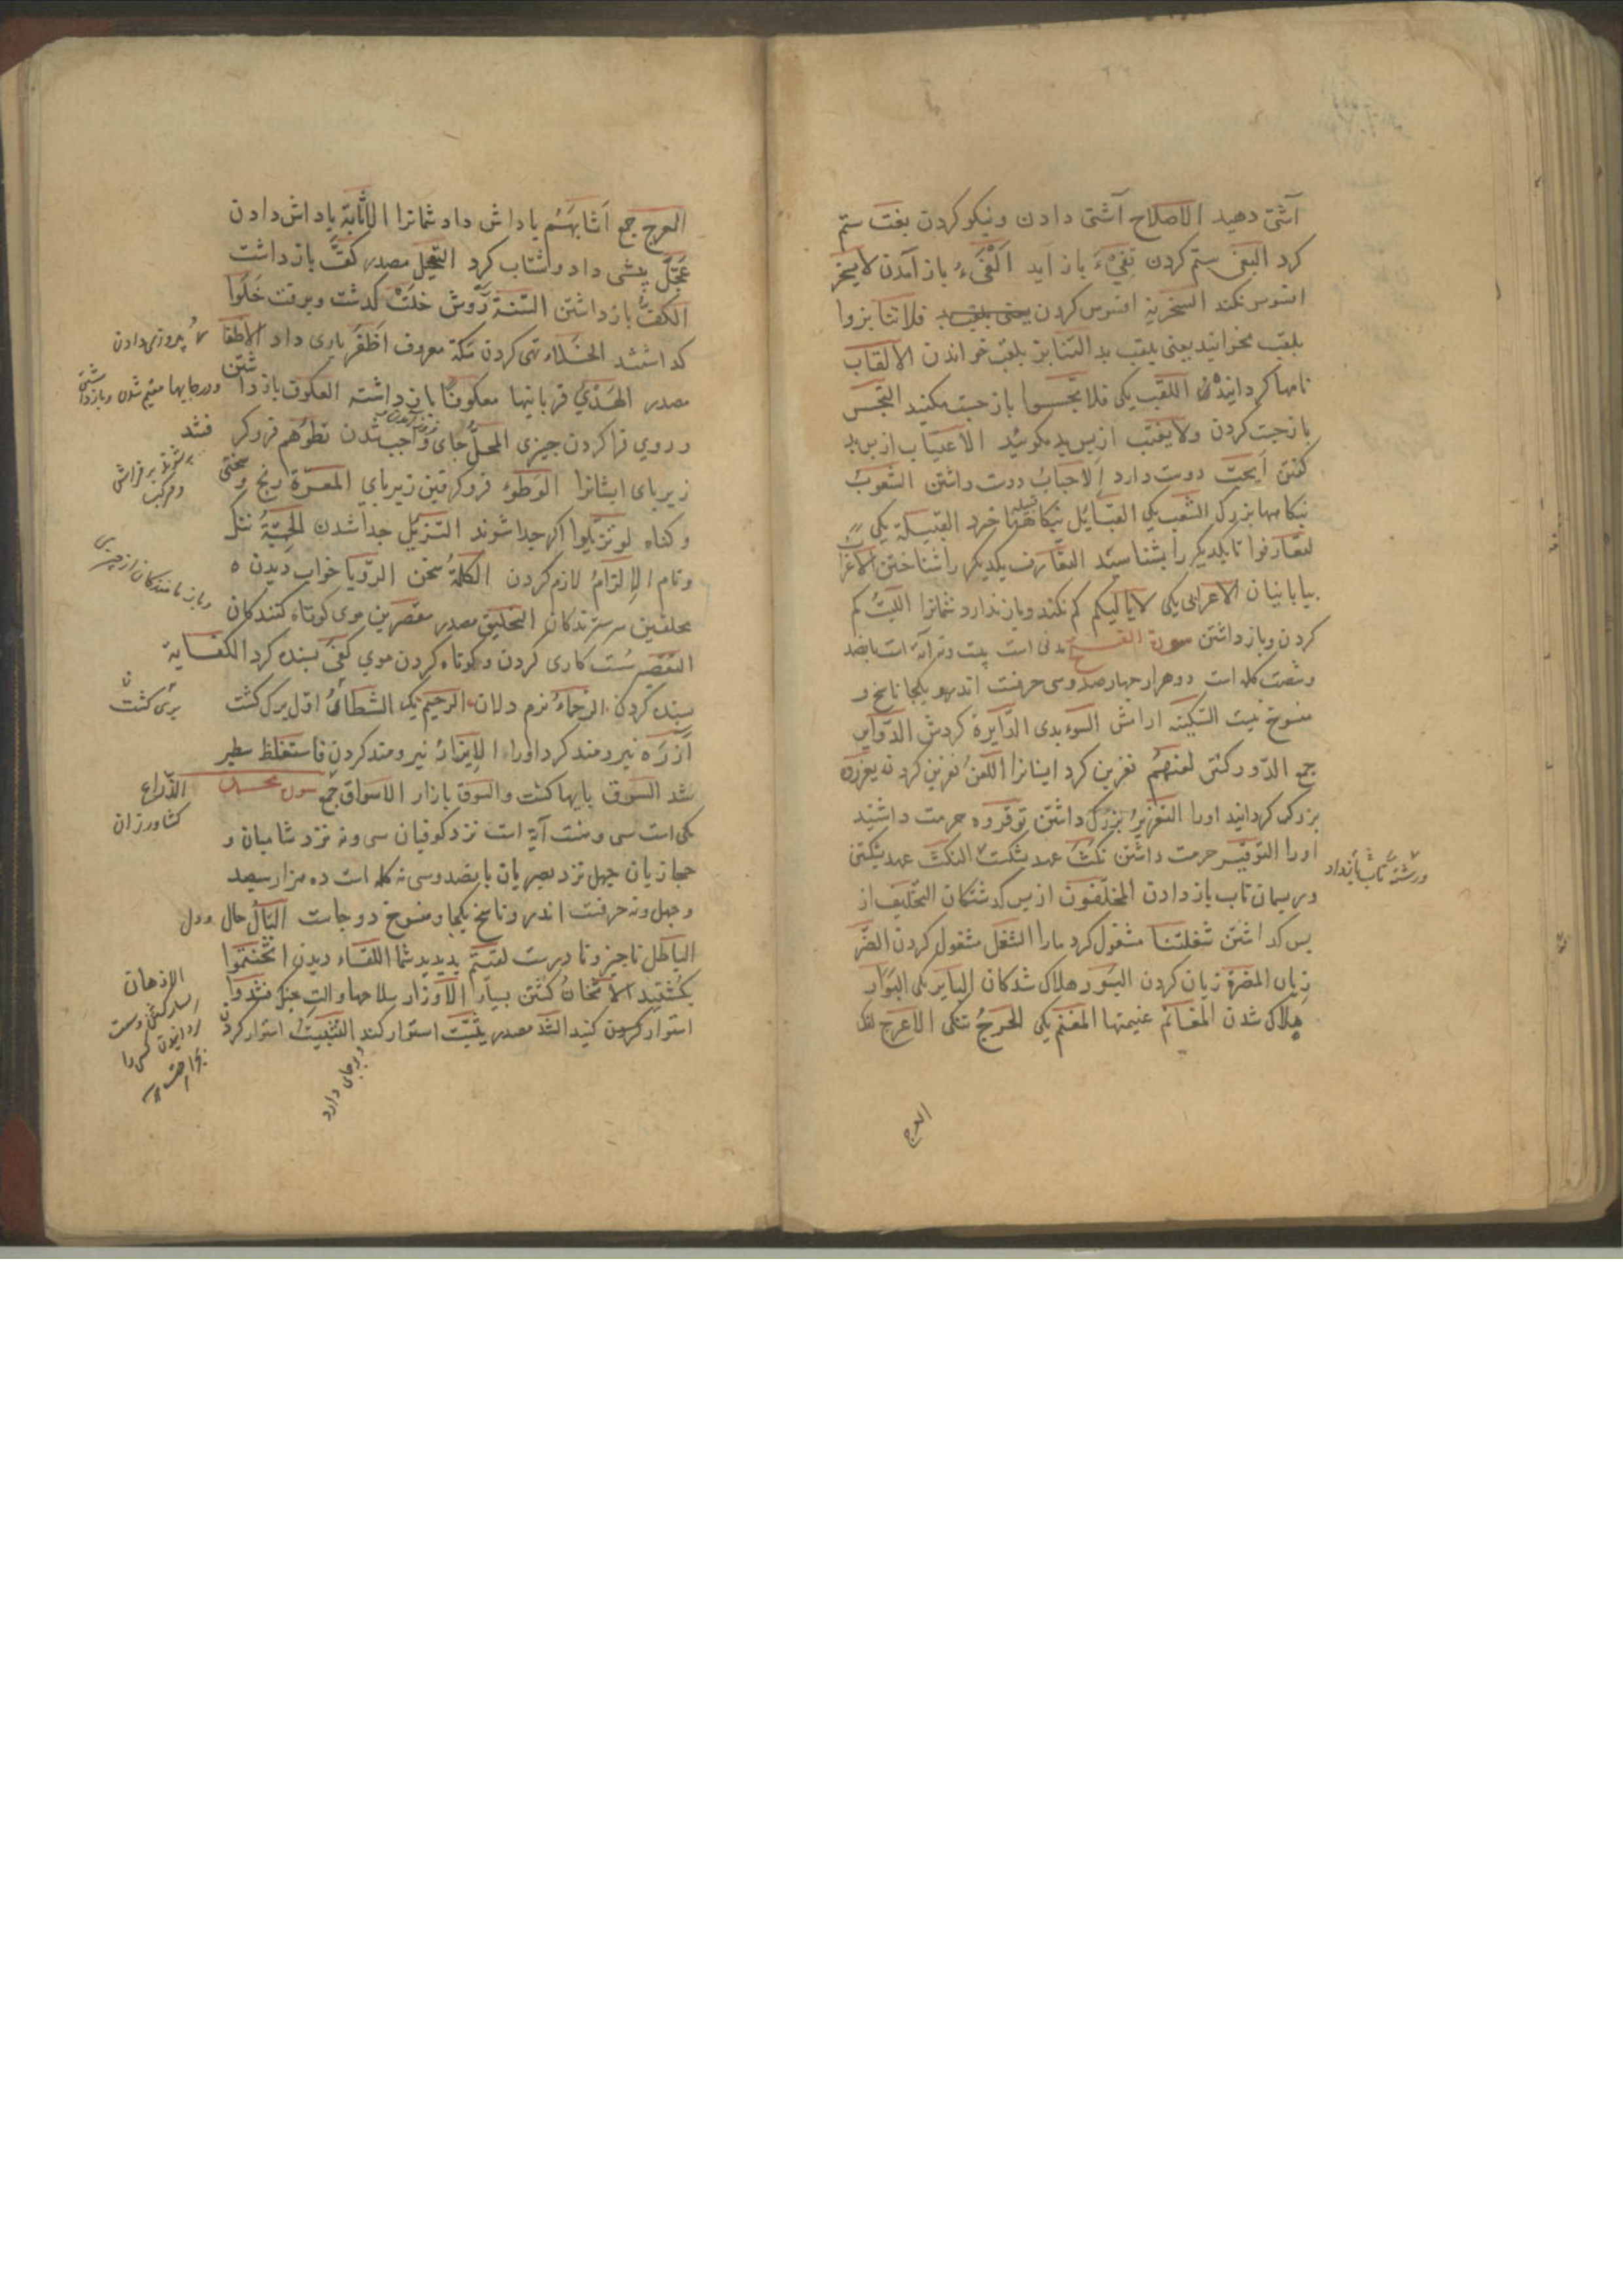 آشتی دهید الاصلاح آشتی دادن ونیکو کردن بغت ستم
کرد البغی ستم کردن تفیٓء باز آید الفیٓء باز آمدن لا یسخر
افسوس نکند السخریة افسوس کردن فلا تنابزوا
بلقب مخوانید یعنی بلقب بد التنابز بلقب خواندن الالقاب
نامها کردانیدن اللقب یکی فلا تجسسوا باز جست مکنید التجسس
باز جست کردن ولا یغتب از پس بد مکوئید الاغتیاب از پس بد
کفتن ایحب دوست دارد الاحباب دوست داشتن الشعوب
بزرک الشعب یکی القبایل خرد القبیلة یکی
لتعارفوا تا یکدیکر را بشناسید التعارف یکدیکر را شناختن الاعراب
بیابانیان الاعرابی یکی لا یالیکم کم نکند وباز ندارد شمانرا اللیت کم
کردن وباز داشتن سورة الفتح مدنی است بیست ونه آیة است پانصد
وشصت کله است دو هزار چهار صد وسی حرفست اندرو یکجا ناسخ و
منسوخ نیست السکینة ارامش السوء بدی الدایرة کردش الدوایر
جمع الدور کشتن لعنهم نفرین کرد ایشانرا اللعن نفرین کردن یعزروه
بزرک کردانید اورا التعزیر بزرک داشتن توقروه حرمت داشتید
اورا التوقیر حرمت داشتن نکث عهد بشکست النکث عهد شکستن
ورشته تاب باز داد
وریسمان تاب باز دادن المخلفون از پس کذشتکان التخلیف از
پس کذاشتن شغلتنا مشغول کرد مارا الشغل مشغول کردن الضر
زیان المضرة زیان کردن البور هلاک شدکان البایر یکی البوار
هلاک شدن المغانم غنیمتها المغنم یکی الحرج تنکی الاعرج لنک
العرج
العرج جمع اثابهم پاداش داد شمانرا الاثابة پاداش دادن
عجل پیشی داد وشتاب کرد التعجیل مصدر کف باز داشت
الکف باز داشتن السنة روش خلت کذشت وبرفت خلوا
کذاشتند الخلاء تهی کردن مکة معروف اظفر یاری داد الاظفار
پیروزی دادن
مصدر الهدی قربانیها معکوفا باز داشته العکوف باز داشتن
ودر جایها مقیم شدن وباز داشتن
وروی فرا کردن چیزی المحل جای واجب شدن تطؤهم فرو کرفتند
زیر پای ایشانرا الوطوء فرو کرفتن زیر پای المعرة رنج وسختی
وکناه لو تزیلوا اکر جدا شوند التزیل جدا شدن الحمیة ننک
ونام الالزام لازم کردن الکلمة سخن الرویا خواب دیدن
محلقین سر سترندکان التحلیق مصدر مقصرین موی کوتاه کنندکان
وباز مانندکان از چیزی
التقصیر سست کاری کردن وکوتاه کردن موی کفی بسنده کرد الکفایة
بسنده کردن الرحماء نرم دلان الرحیم یکی الشطأ اول برک کشت
آزره نیرومند کرد اورا الایزار نیرومند کردن فاستغلظ سطبر
شد السوق پایها کشت والسوق بازار الاسواق جمع سورة محمد
الزراع
کشاورزان
مکی است سی وهشت آیة است نزد کوفیان سی ونه نزد شامیان و
حجازیان چهل نزد بصریان پانصد وسی نه کله است ده هزار سیصد
وچهل ونه حرفست اندرو ناسخ یکجا ومنسوخ دو جاست البال حال ودل
الباطل ناچیز ونا درست لقیتم بدیدید شما اللقاء دیدن اثخنتموا
بکشتید الاثخان کشتن بسیار الاوزار سلاحها والت جنک فشدوا
استوار کردن کنید الشد مصدر یثبت استوار کند التثبیت استوار کردن
وبر جای دارد